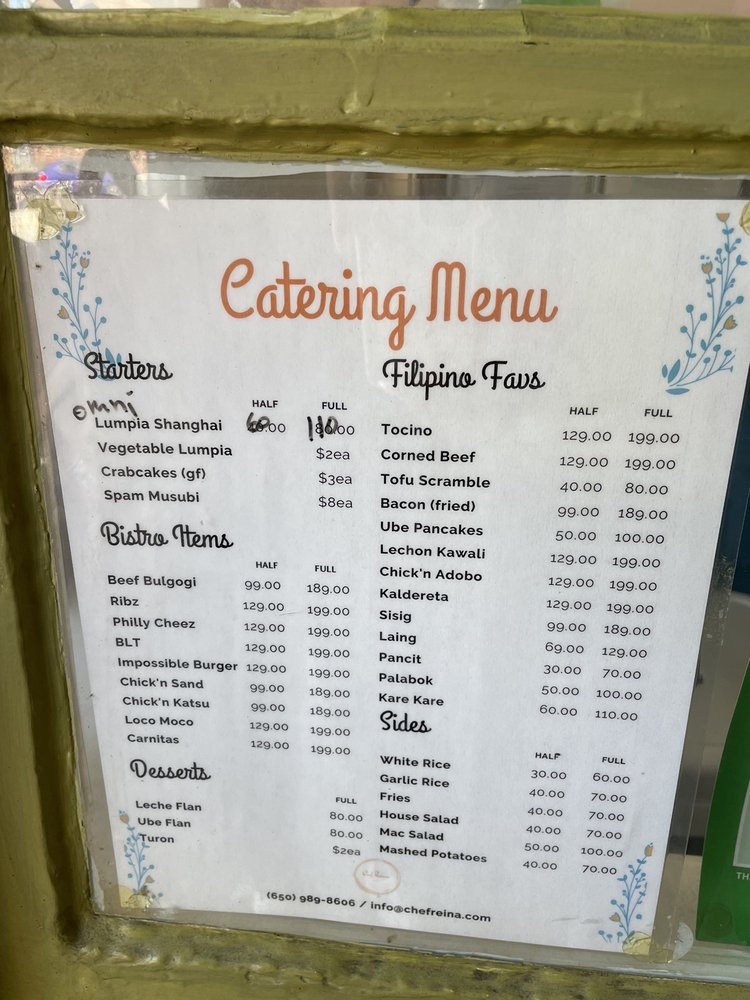 Catering Menu
Starters
HALF FULL
omni
Lumpia Shanghai 60.00 110.00
Vegetable Lumpia $2ea
Crabcakes (gf) $3ea
Spam Musubi $8ea
Bistro Items
HALF FULL
Beef Bulgogi 99.00 189.00
Ribz 129.00 199.00
Philly Cheez 129.00 199.00
BLT 129.00 199.00
Impossible Burger 129.00 199.00
Chick'n Sand 99.00 189.00
Chick'n Katsu 99.00 189.00
Loco Moco 129.00 199.00
Carnitas 129.00 199.00
Desserts
FULL
Leche Flan 80.00
Ube Flan 80.00
Turon $2ea
Filipino Favs
HALF FULL
Tocino 129.00 199.00
Corned Beef 129.00 199.00
Tofu Scramble 40.00 80.00
Bacon (fried) 99.00 189.00
Ube Pancakes 50.00 100.00
Lechon Kawali 129.00 199.00
Chick'n Adobo 129.00 199.00
Kaldereta 129.00 199.00
Sisig 99.00 189.00
Laing 69.00 129.00
Pancit 30.00 70.00
Palabok 50.00 100.00
Kare Kare 60.00 110.00
Sides
HALF FULL
White Rice 30.00 60.00
Garlic Rice 40.00 70.00
Fries 40.00 70.00
House Salad 40.00 70.00
Mac Salad 50.00 100.00
Mashed Potatoes 40.00 70.00
(650) 989-8606 / info@chefreina.com
TH